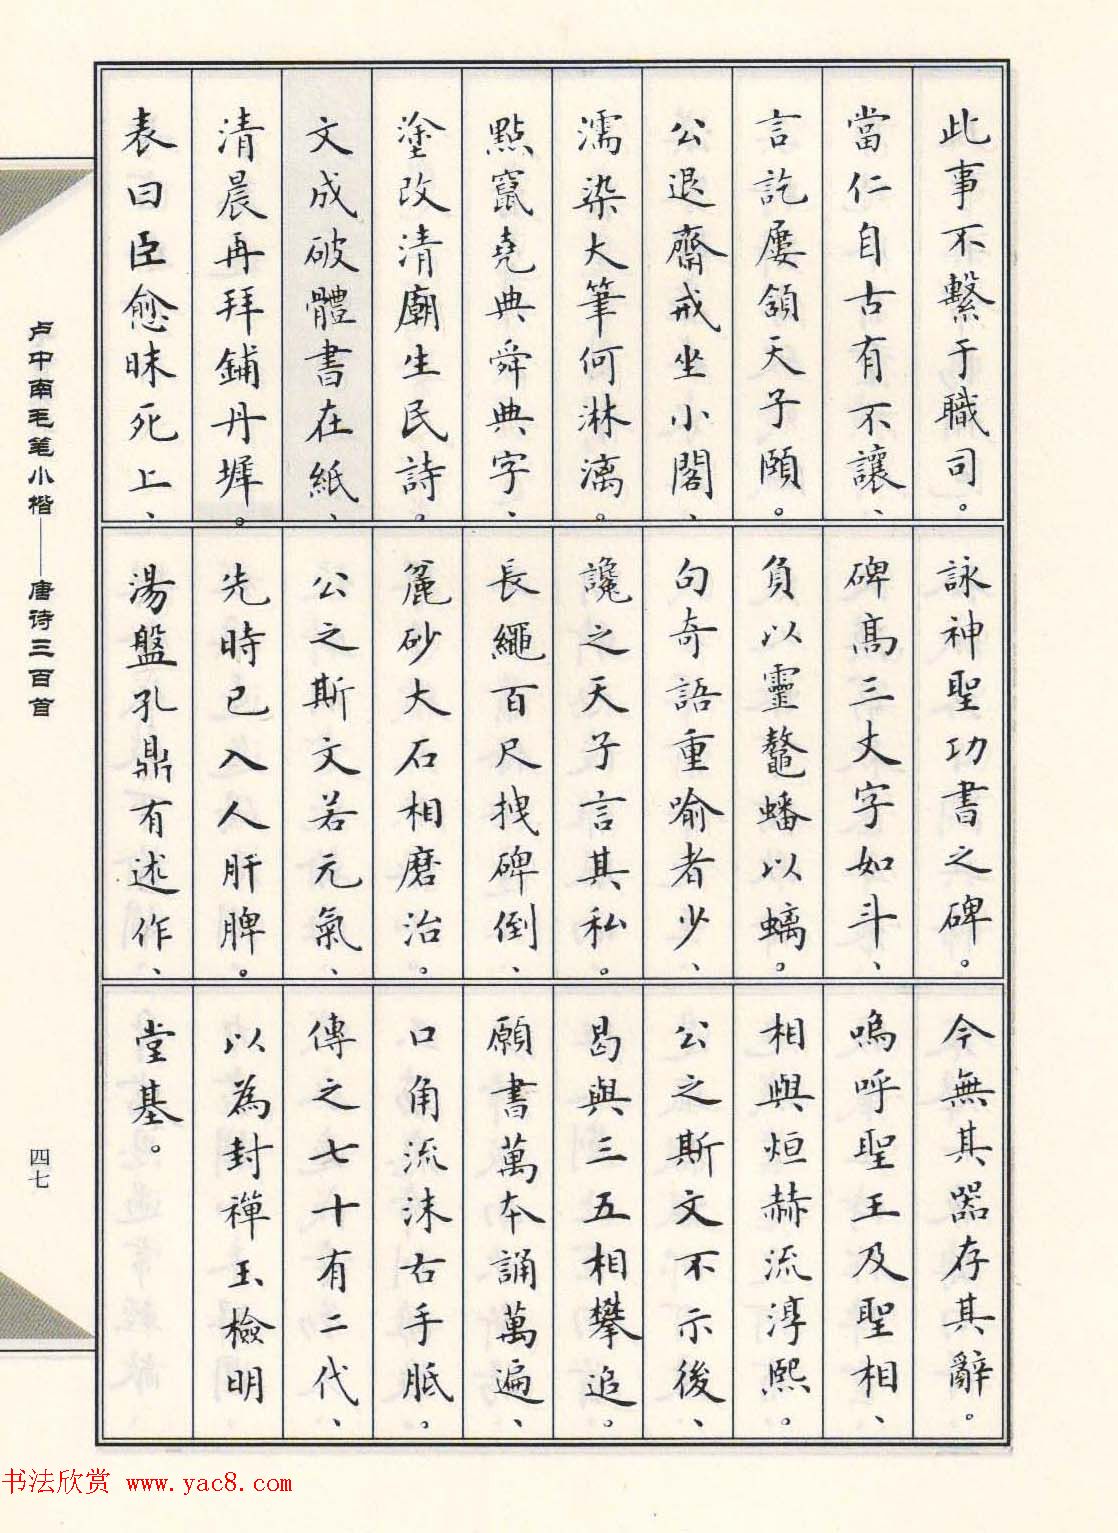 此事不繫于職司。
當仁自古有不讓、
言訖屢頷天子頤。
公退齋戒坐小閣、
濡染大筆何淋漓。
點竄堯典舜典字、
塗改清廟生民詩。
文成破體書在紙、
清晨再拜鋪丹墀。
表曰臣愈昧死上、
詠神聖功書之碑。
碑高三丈字如斗、
負以靈鼇蟠以螭。
句奇語重喻者少、
讒之天子言其私。
長繩百尺拽碑倒、
麄砂大石相磨治。
公之斯文若元氣、
先時已入人肝脾。
湯盤孔鼎有述作、
今無其器存其辭。
嗚呼聖王及聖相、
相與烜赫流淳熙。
公之斯文不示後、
曷與三五相攀追。
願書萬本誦萬遍、
口角流沫右手胝。
傳之七十有二代、
以為封禪玉檢明
堂基。
卢中南毛笔小楷——唐诗三百首
四七
书法欣赏 www.yac8.com